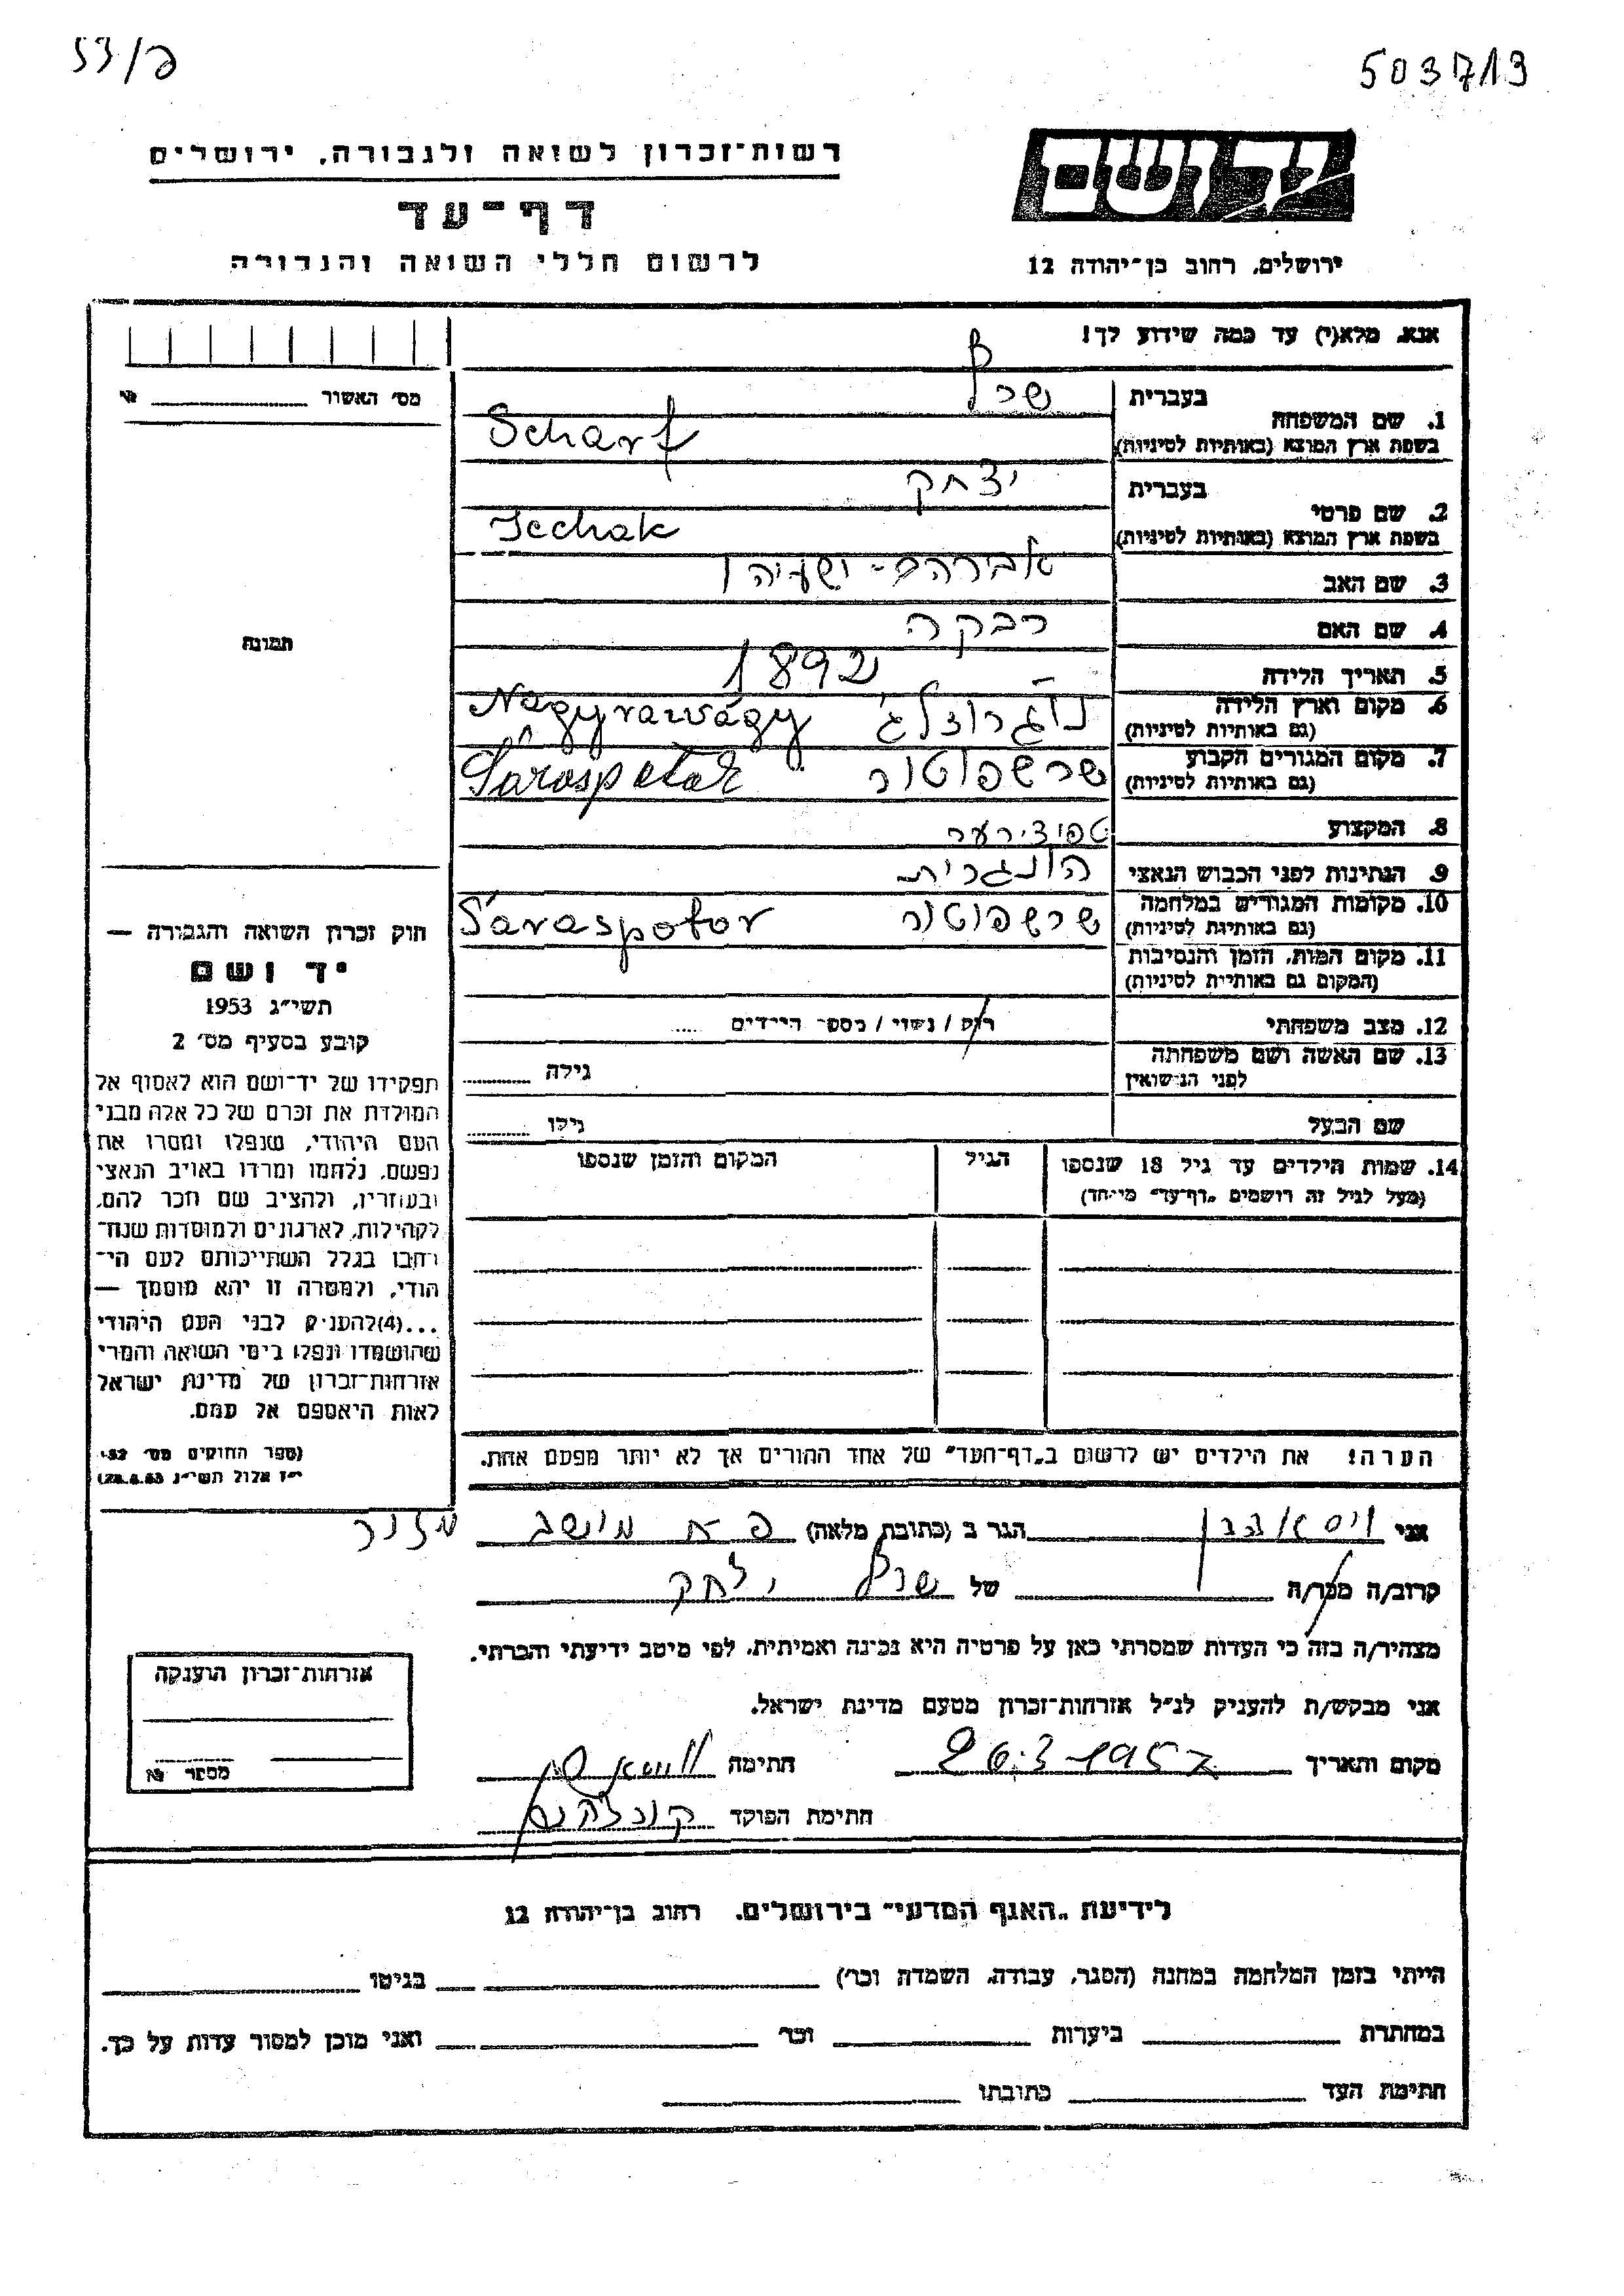 53/פ
503713
רשות־זכרון לשואה ולגבורה, ירושלים
דף־עד
לרשום חללי השואה והגבורה
ידושם
ירושלים, רחוב בן־יהודה 12
אנא, מלא(י) עד כמה שידוע לך!
מס׳ האשור
1. שם המשפחה
בעברית שרף
בשפת ארץ המוצא (באותיות לטיניות) Scharf
2. שם פרטי
בעברית יצחק
בשפת ארץ המוצא (באותיות לטיניות) Jechak
3. שם האב אברהם - ישעיהו
4. שם האם רבקה
5. תאריך הלידה 1892
6. מקום וארץ הלידה
(גם באותיות לטיניות)
7. מקום המגורים הקבוע שרשפוטור
(גם באותיות לטיניות) Sárospotak
8. המקצוע טפוצירער
9. הנתינות לפני הכבוש הנאצי הונגרית
10. מקומות המגורים במלחמה שרשפוטור
(גם באותיות לטיניות) Sáraspotor
11. מקום המות, הזמן והנסיבות
(המקום גם באותיות לטיניות)
12. מצב משפחתי רוק / נשוי / מספר הילדים .....
13. שם האשה ושם משפחתה
לפני הנישואין
גילה
שם הבעל גילו
14. שמות הילדים עד גיל 18 שנספו
(מעל לגיל זה רושמים „דף־עד״ מיוחד)
הגיל
המקום והזמן שנספו
הערה! את הילדים יש לרשום ב„דף־העד״ של אחד ההורים אך לא יותר מפעם אחת.
תמונה
חוק זכרון השואה והגבורה —
יד ושם
תשי״ג 1953
קובע בסעיף מס׳ 2
תפקידו של יד־ושם הוא לאסוף אל
המולדת את זכרם של כל אלה מבני
העם היהודי, שנפלו ומסרו את
נפשם, נלחמו ומרדו באויב הנאצי
ובעוזריו, ולהציב שם וזכר להם,
לקהילות, לארגונים ולמוסדות שנח־
רבו בגלל השתייכותם לעם הי־
הודי, ולמטרה זו יהא מוסמך —
...(4)להעניק לבני העם היהודי
שהושמדו ונפלו בימי השואה והמרי
אזרחות־זכרון של מדינת ישראל
לאות היאספם אל עמם.
(ספר החוקים מס׳ 132,
י״ז אלול תשי״ג 28.8.53)
אני הגר ב (כתובת מלאה) מושב מזור
קרוב/ה מכר/ה של שרף יצחק
מצהיר/ה בזה כי העדות שמסרתי כאן על פרטיה היא נכונה ואמיתית, לפי מיטב ידיעתי והכרתי.
אני מבקש/ת להעניק לנ״ל אזרחות־זכרון מטעם מדינת ישראל.
מקום ותאריך 26.3.1957 חתימה
חתימת הפוקד
אזרחות־זכרון הוענקה
מספר №
לידיעת „האגף המדעי״ בירושלים, רחוב בן־יהודה 12
הייתי בזמן המלחמה במחנה (הסגר, עבודה, השמדה וכו׳) בגיטו
במחתרת ביערות וכו׳ ואני מוכן למסור עדות על כך.
חתימת העד כתובתו